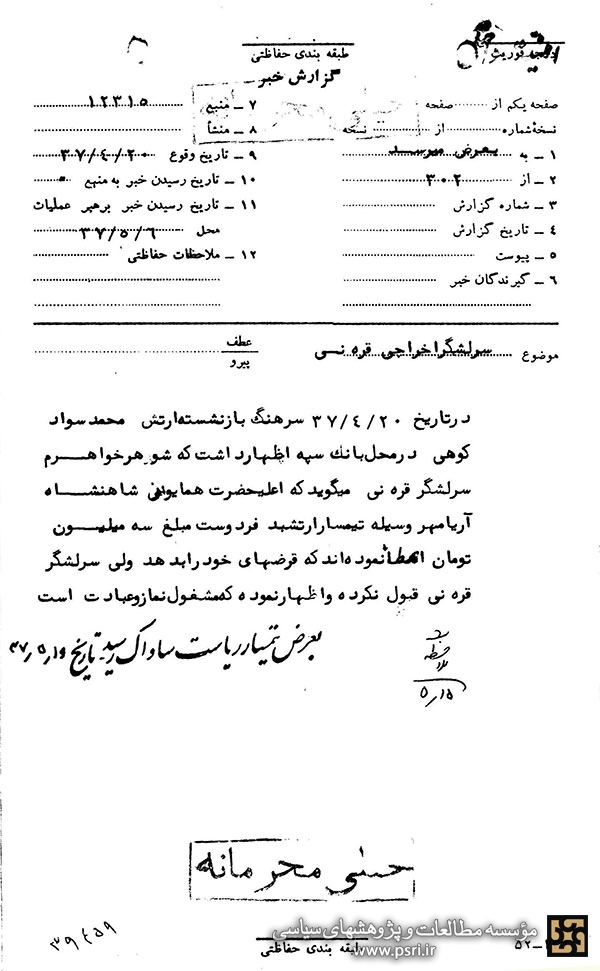 طبقه بندی حفاظتی
گزارش خبر
صفحه یکم از صفحه
نسخه شماره از نسخه
۱ ـ به بعرض میرسد
۲ ـ از ۳۰۲
۳ ـ شماره گزارش
۴ ـ تاریخ گزارش
۵ ـ پیوست
۶ ـ گیرندگان خبر
۷ ـ منبع ۱۲۳۱۵
۸ ـ منشأ
۹ ـ تاریخ وقوع ۳۷/۴/۲۰
۱۰ ـ تاریخ رسیدن خبر به منبع
۱۱ ـ تاریخ رسیدن خبر برهبر عملیات
محل ۳۷/۵/۶
۱۲ ـ ملاحظات حفاظتی
موضوع سرلشگر اخراجی قره نی
عطف
پیرو
در تاریخ ۳۷/۴/۲۰ سرهنگ بازنشسته ارتش محمد سواد
کوهی در محل بانك سپه اظهار داشت که شوهر خواهرم
سرلشگر قره نی میگوید که اعلیحضرت همایونی شاهنشاه
آریامهر وسیله تیمسار ارتشبد فردوست مبلغ سه میلیون
تومان اعطا نموده اند که قرضهای خود را بدهد ولی سرلشگر
قره نی قبول نکرده و اظهار نموده که مشغول نماز و عبادت است
بعرض تیمسار ریاست ساواک رسید. تاریخ ۳۷/۵/۱۵
ملاحظه شد
۵/۱۵
خیلی محرمانه
۳۹۴۵۹
طبقه بندی حفاظتی
۵۲ ـ
مؤسسه مطالعات و پژوهشهای سیاسی
www.psri.ir